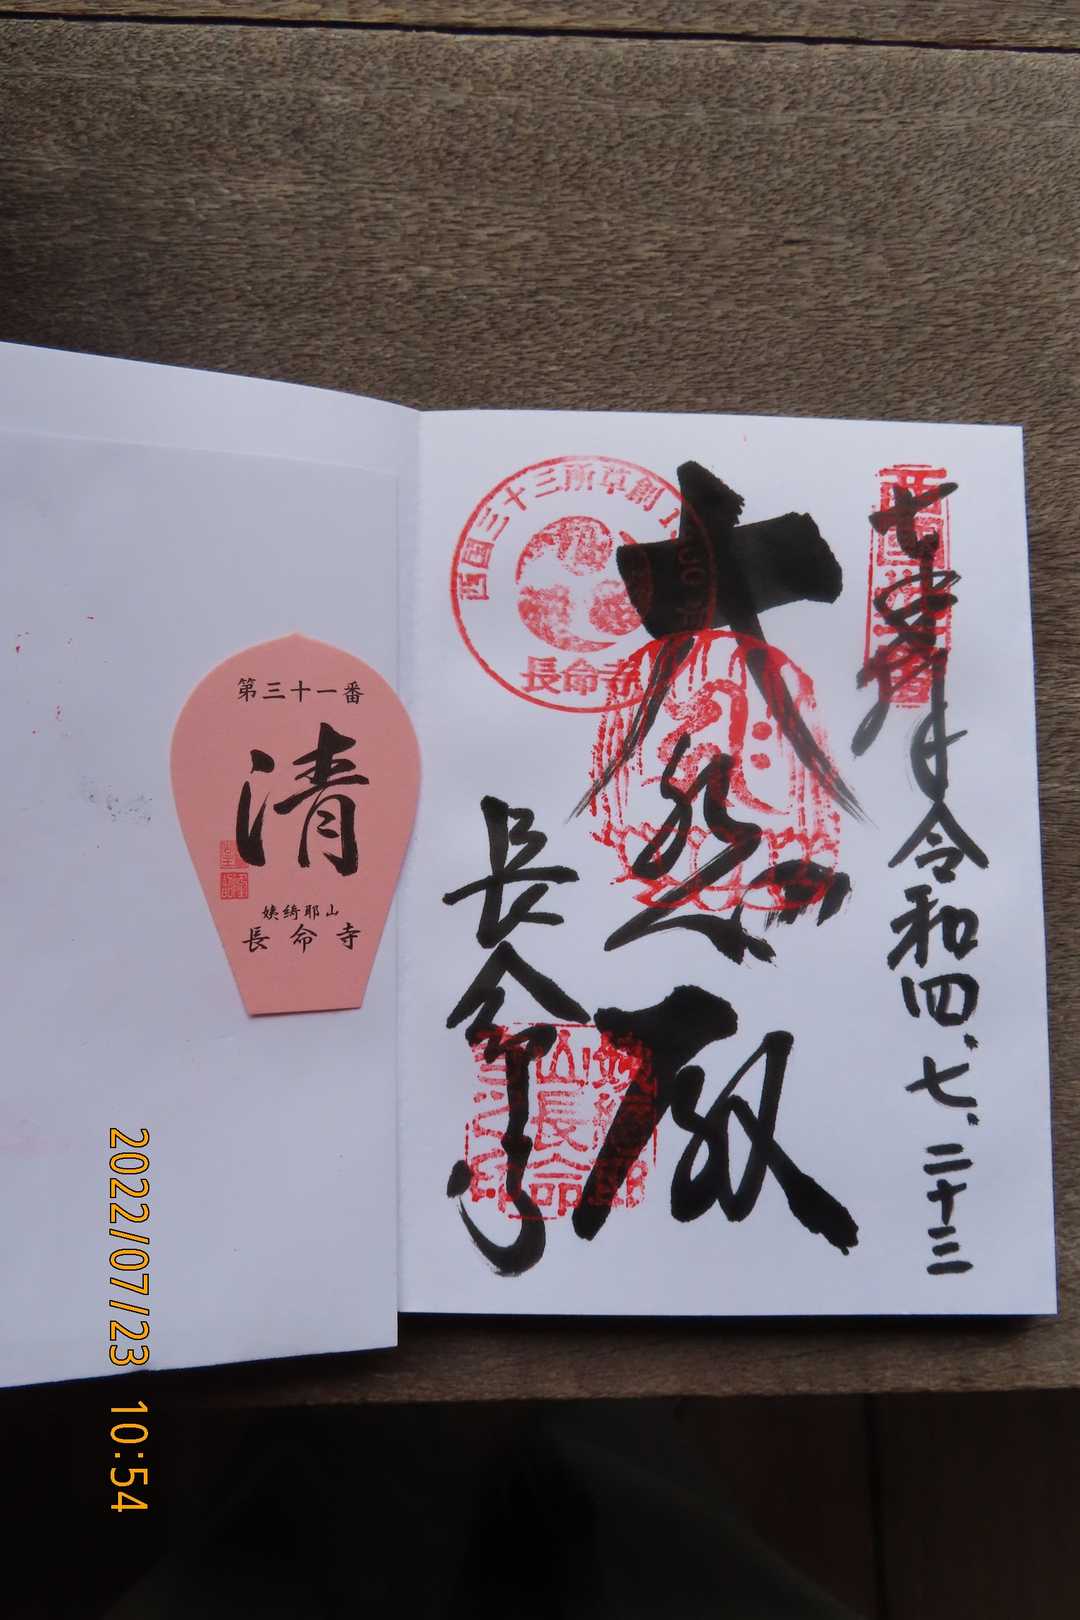 西国三十三所草創1300年
長命寺
西国三十一番
令和四、七、二十三
大悲殿
長命寺
姨綺耶
山長命
寺之印
第三十一番
清
姨綺耶山
長命寺
2022/07/23 10:54